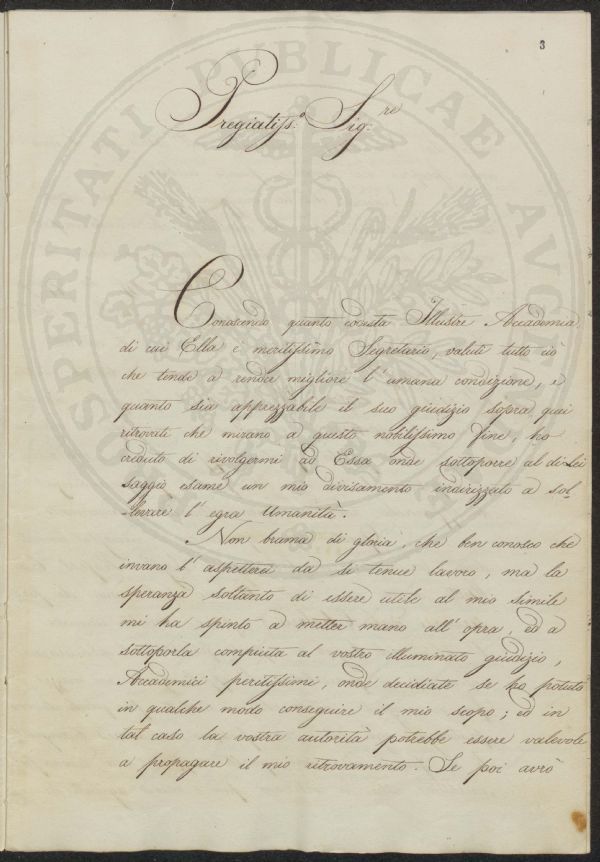 3
Pregiatiss.º Sig.re
Conoscendo quanto codesta Illustre Accademia,
di cui Ella è meritissimo Segretario, valuti tutto ciò
che tende a render migliore l'umana condizione, e
quanto sia apprezzabile il suo giudizio sopra quei
ritrovati che mirano a questo nobilissimo fine, ho
creduto di rivolgermi ad Essa onde sottoporre al di Lei
saggio esame un mio divisamento indirizzato a sol-
levare l'egra Umanità.
Non brama di gloria, che ben conosco che
invano l'aspetterei da sì tenue lavoro, ma la
speranza soltanto di essere utile al mio simile
mi ha spinto a metter mano all'opra, ed a
sottoporla compiuta al vostro illuminato giudizio,
Accademici peritissimi, onde decidiate se ho potuto
in qualche modo conseguire il mio scopo; ed in
tal caso la vostra autorità potrebbe essere valevole
a propagare il mio ritrovamento. Se poi avrò
PROSPERITATI PUBLICAE AUG